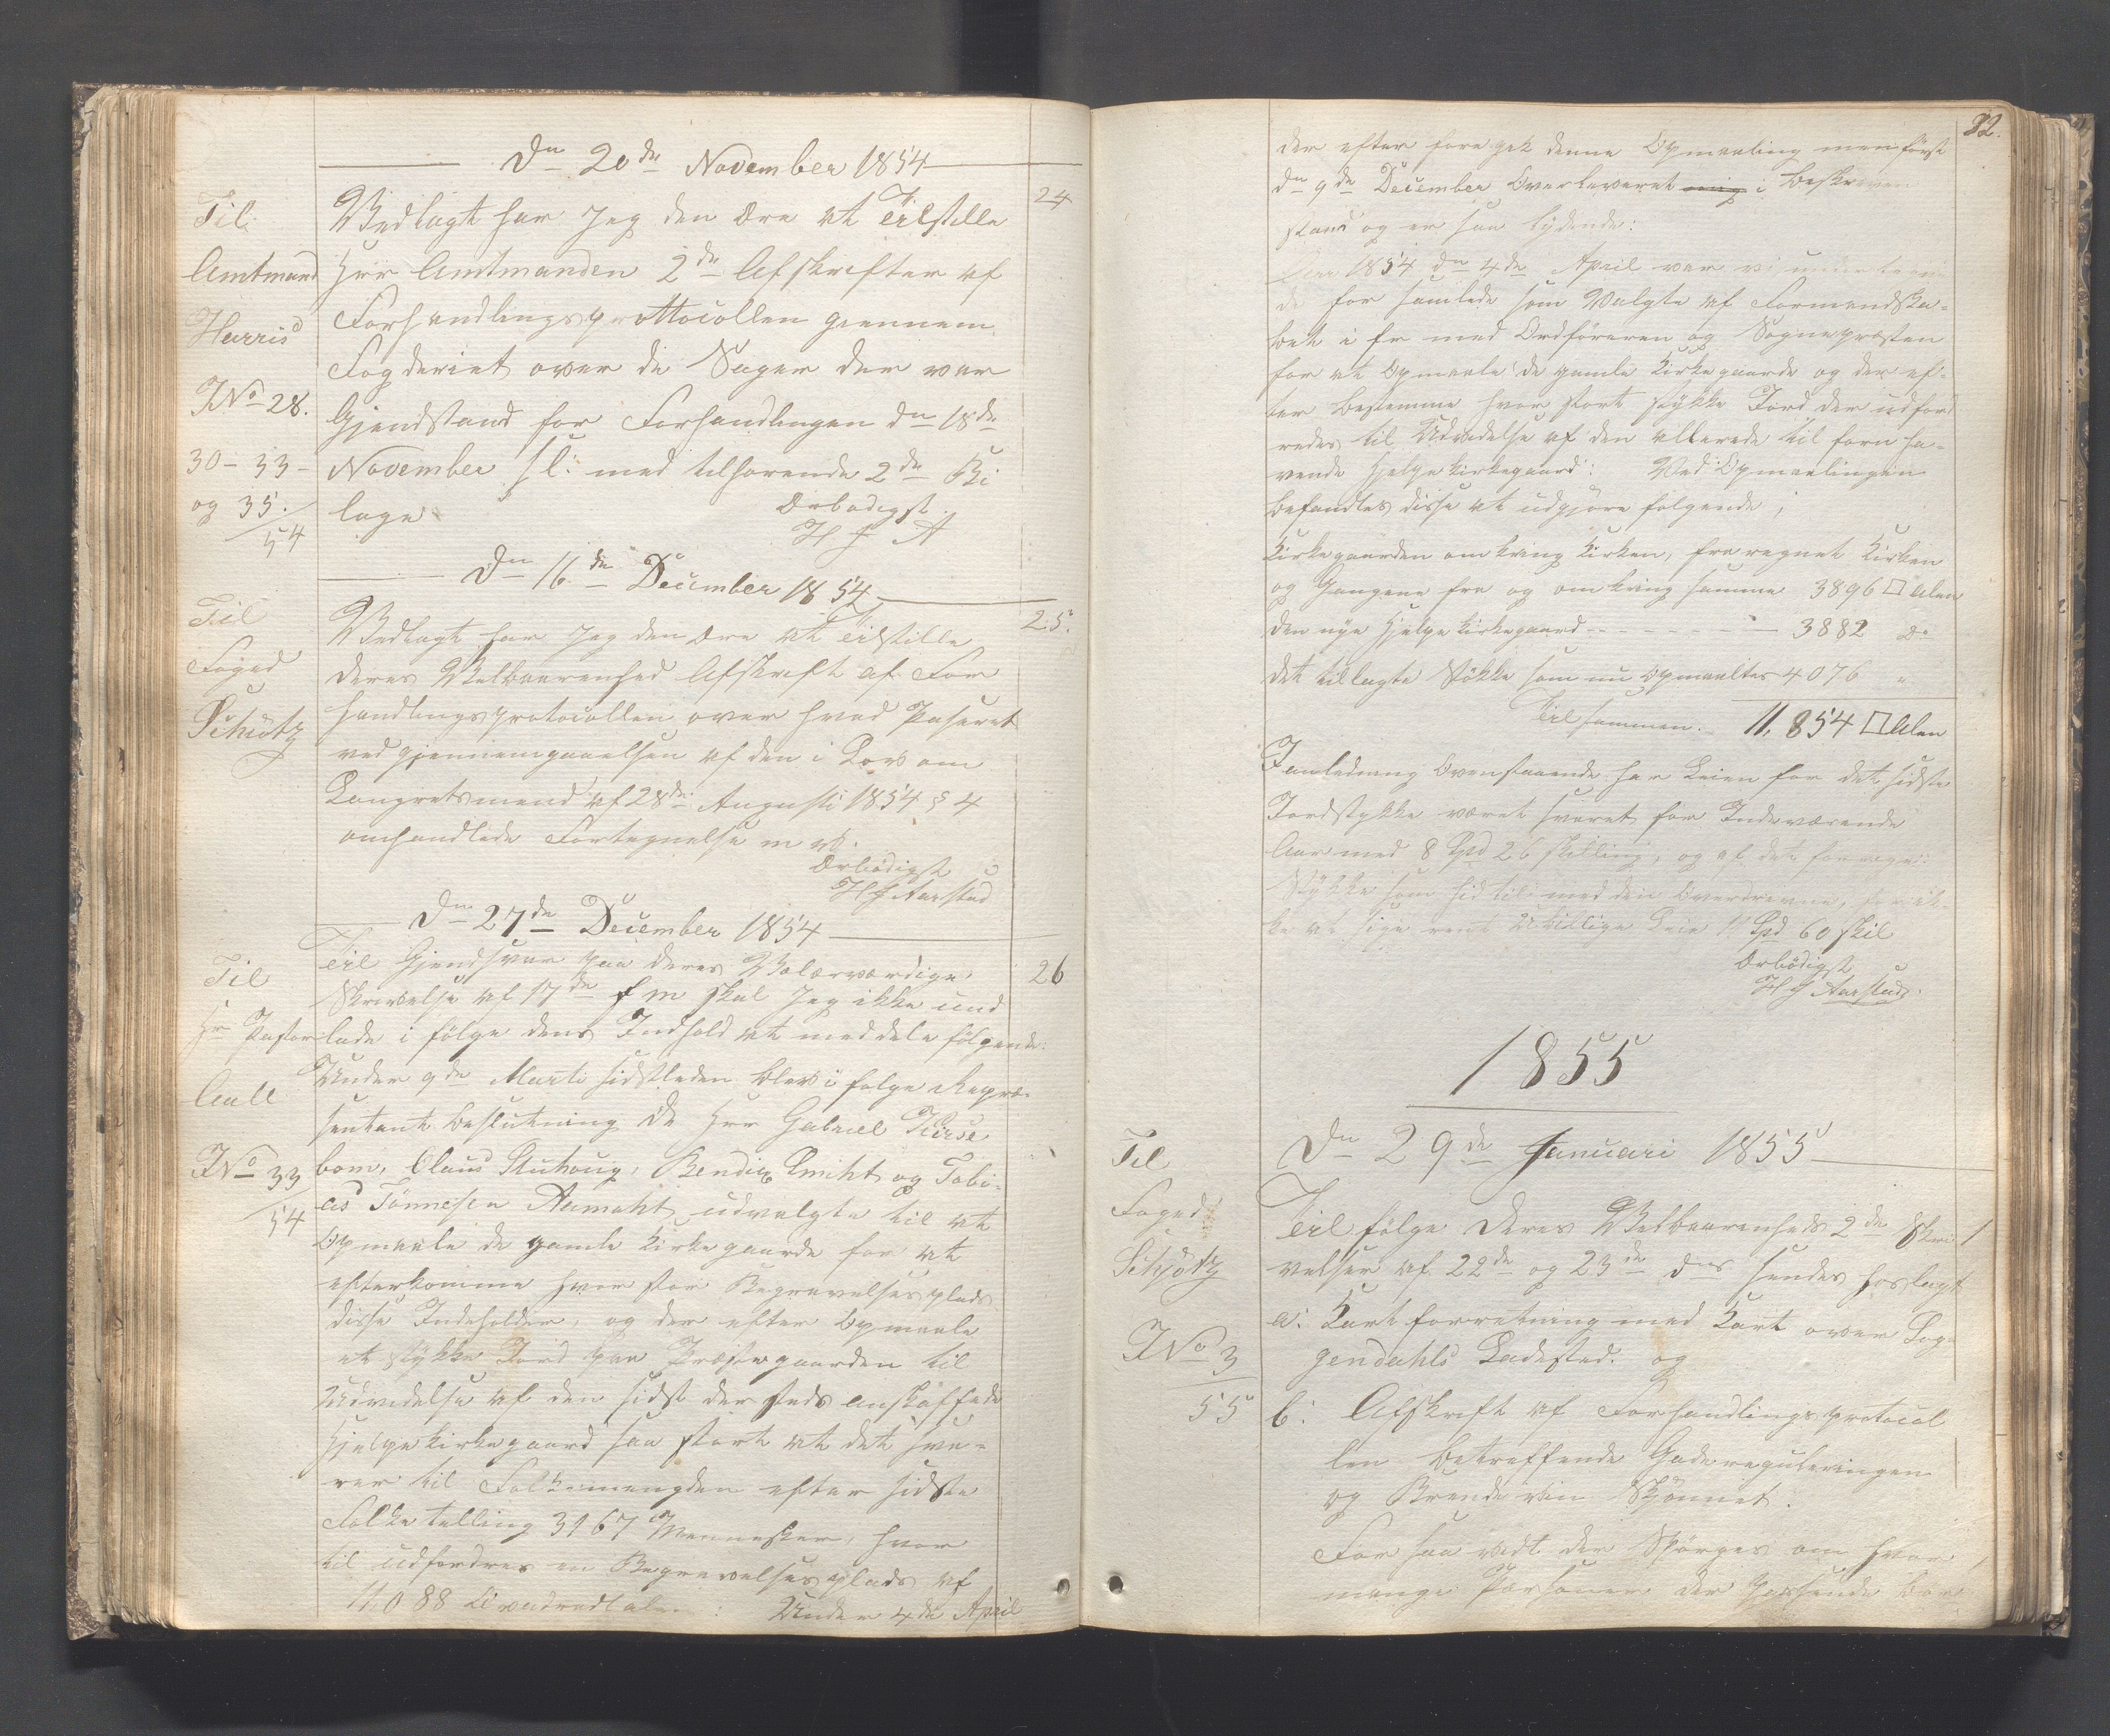 Dn 20de November 1854
Til
Amtmand
Harris
JNo 28.
30 - 33 -
og 35.
54
Vedlagt har Jeg den Ære at Tilstille
24
Herr Amtmanden 2de Afskrifter af
Forhandlingsprottocollen giennem
Fogderiet over de Sager der var
Gjendstand for Forhandlingen dn 18de
November sl: med tilhørende 2de Bi
lage
Ærbødigst
H J A
Dn 16de December 1854
Til
Foged
Schiøtz
Vedlagt har Jeg den Ære at Tilstille
25.
Deres Velbaarenhed Afskrift af For
handlingsprotocollen over hvad Paseret
ved gjennemgaaelsen af den i Lov om
Laugretsmend af 28de Augusti 1854 § 4
omhandlede Fortegnelse m v.
Ærbødigst
H J Aarstad
Dn 27de December 1854
Til
Hr Pastor
Aall
JNo 33
54
Til Gjendsvar paa Deres Velærværdige
26
Skrivelse af 17de f m skal Jeg ikke und
lade i følge dens Indhold at meddele følgende:
Under 9de Marti sidstleden blev i følge Repræ-
sentant beslutning de Herr Gabriel Kirse
bom, Claus Stuhoug, Bendix Emiht og Tobi-
as Tønnesen Aamodt udvalgte til at
Opmaale de gamle Kirkegaarde for at
efterkomme hvor stor Begravelsesplads
disse Indeholder, og der efter Opmaale
et stykke Jord paa Præstegaarden til
Udvidelse af den sidst der steds anskaffede
Hjelpekirkegaard saa stort at det sva-
rer til Folkemengden efter sidste
Folketelling 3167 Mennesker, hvor
til udfordres en Begravelsesplads af
11,088 Qvadratalen: Under 4de April
32.
der efter fore gik denne Opmaaling men først
dn 9de December Overleveret mig i beskreven
stand og er saa lydende:
Aar 1854 dn 4de April var vi
de for samlede som Valgte af Formandska-
bet i fr med Ordføreren og Sognepræsten
for at Opmaale de gamle Kirkegaarde og der ef-
ter bestemme hvor stort stykke Jord der udford
redes til Udvidelse af den allerede til forn ha-
vende Hjelpekirkegaard: Ved Opmaalingen
befandtes disse at udgjøre følgende,
Kirkegaarden omkring Kirken, fra regnet Kirken
og Gangene fra og omkring samme 3896 □ Alen
den nye Hjelpekirkegaard - - - - - - - 3882 Do
det tillagte Støkke som nu opmaaltes 4076 "
Tilsammen. 11,854 □ Alen
I anledning Ovenstaaende har Leien for det sidste
Jordstykke været svaret for Indeværende
Aar med 8 Spd 26 skilling, og af det forrige
Stykke som hid til med den Overdrevne, for ik-
ke at sige rent Ubillige Leie 11 Spd 60 skil
Ærbødigst
H J Aarstad.
1855
Dn 29de Januari 1855
Til
Foged
Schjøtz
JNo 3
55
Til følge Deres Velbaarenheds 2de Skri
1
velser af 22de og 23de ds sendes hoslagt
a: Kart forretning med Kart over Sog-
gendahls Ladested. og
b: Afskrift af Forhandlings protocol
len betreffende Gade reguleringen
og Brende vin Skjønnet.
For saa vidt der Spørges om hvor
mange Personer der passende bør